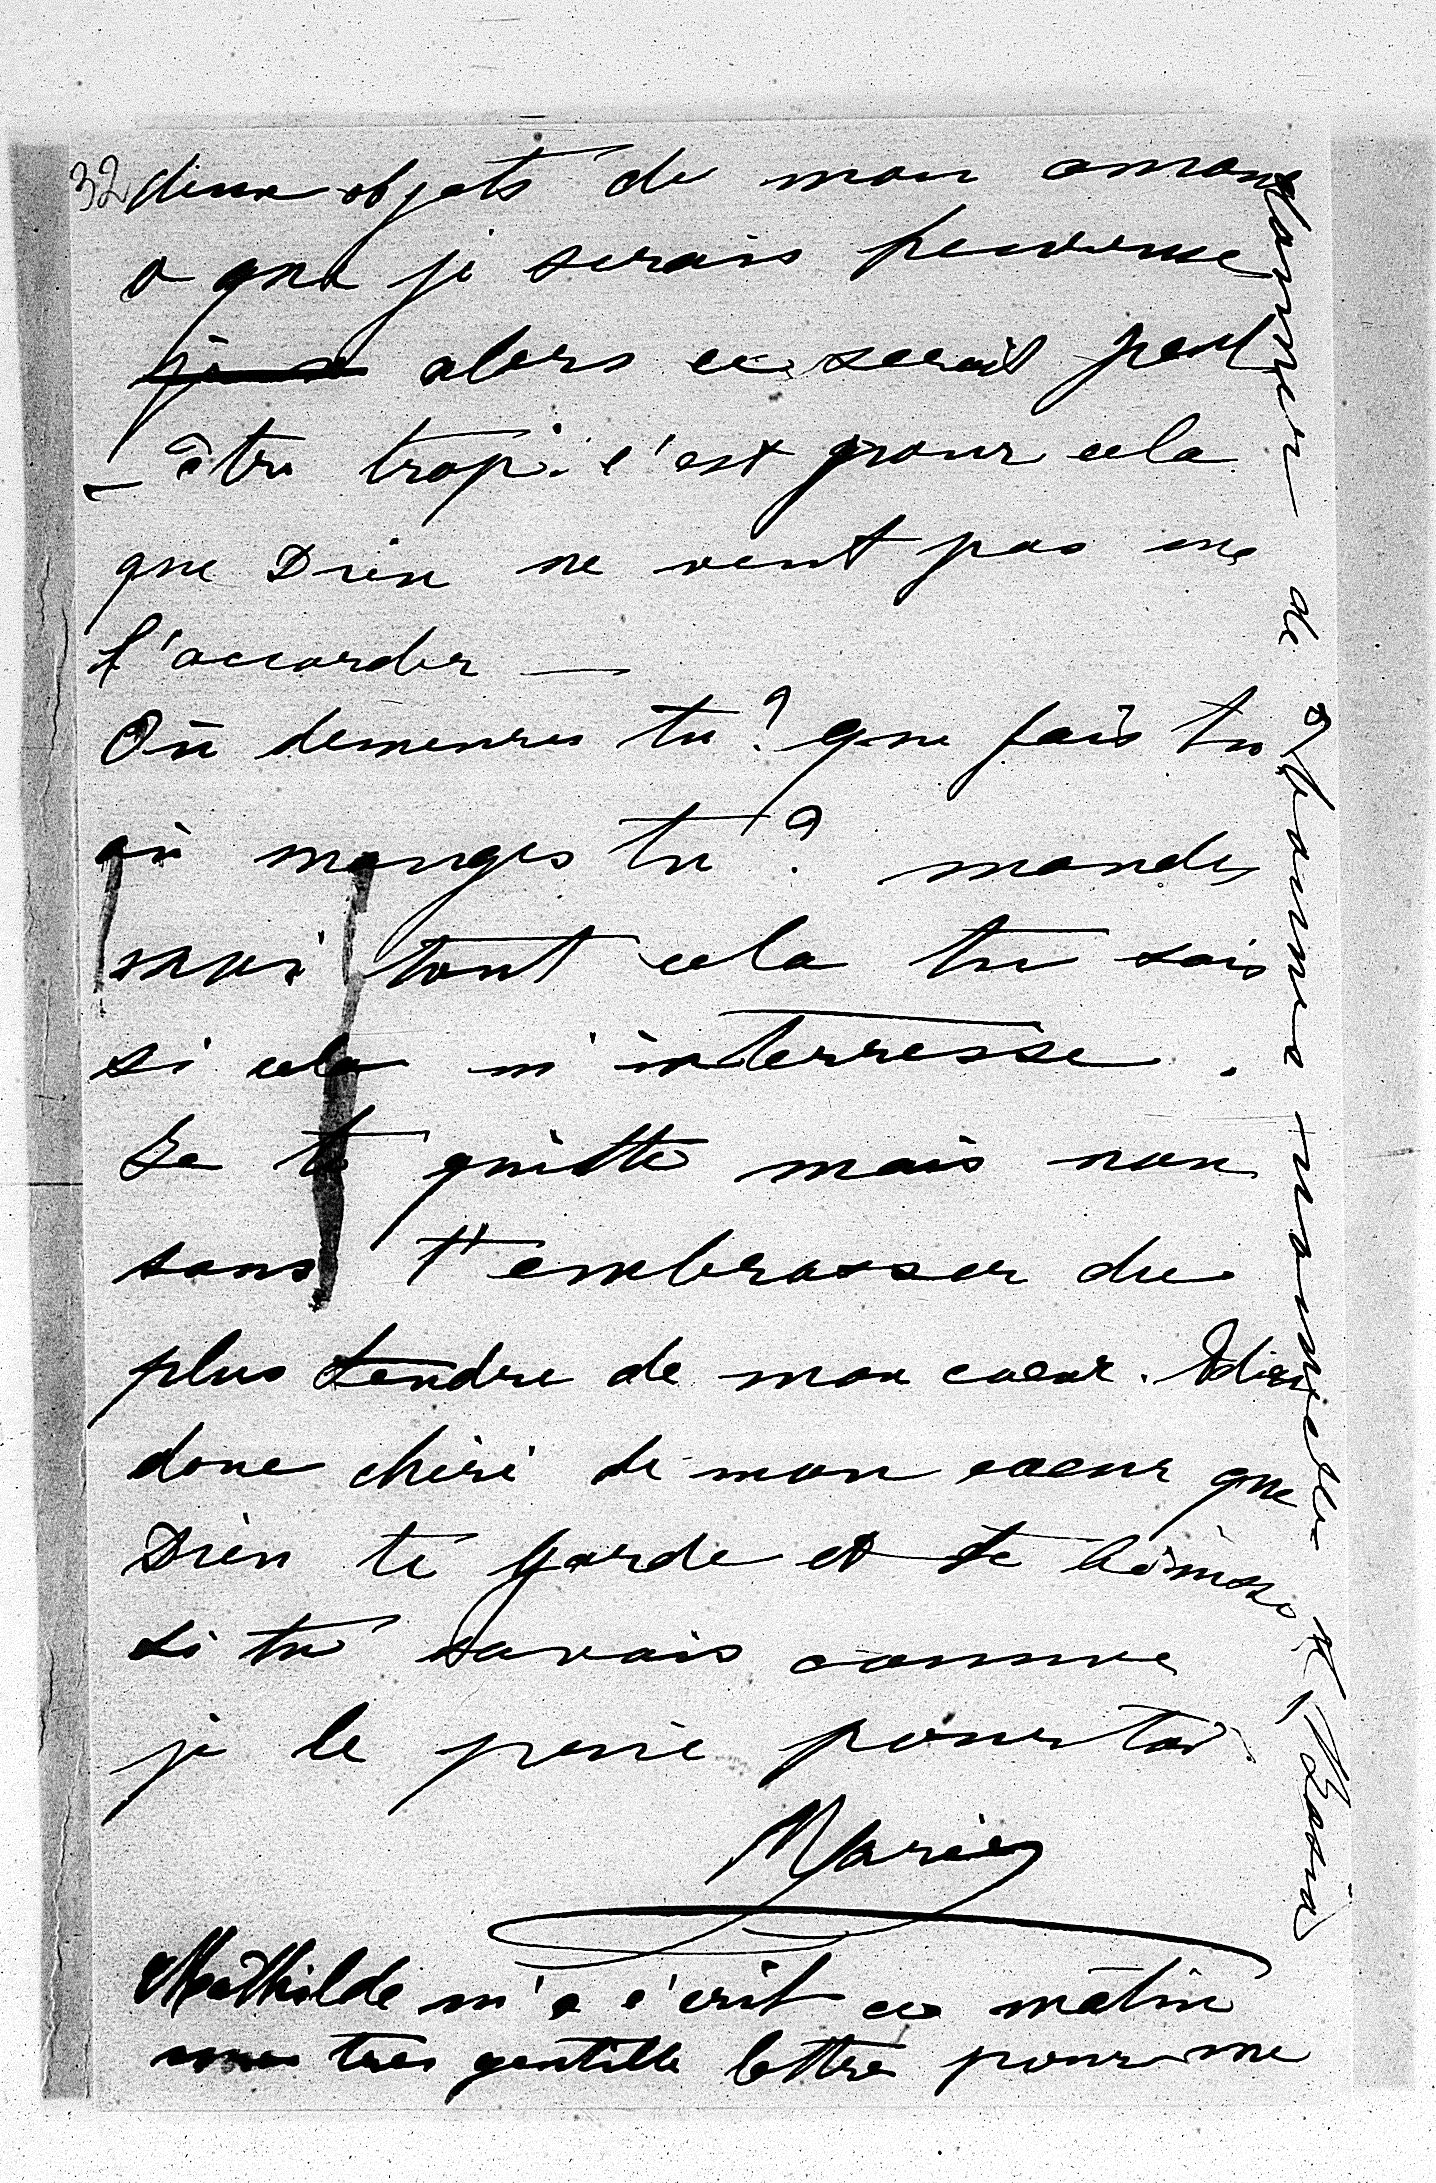 32
deux objets de mon amour
o que je serais heureuse
je s alors ce serait peut
- être trop. c'est pour cela
que Dieu ne veut pas me
l'accorder —
Où demeures tu? que fais tu
où manges tu? mandes
moi tout cela tu sais
si cela m'interresse.
Je te quitte mais non
sans t'embrasser du
plus tendre de mon coeur. Adieu
donc chéri de mon coeur que
Dieu te garde et te bénisse
si tu savais comme
je le prie pour toi
Marie
Mathilde m'a écrit ce matin
une tres gentille lettre pour me
donner de